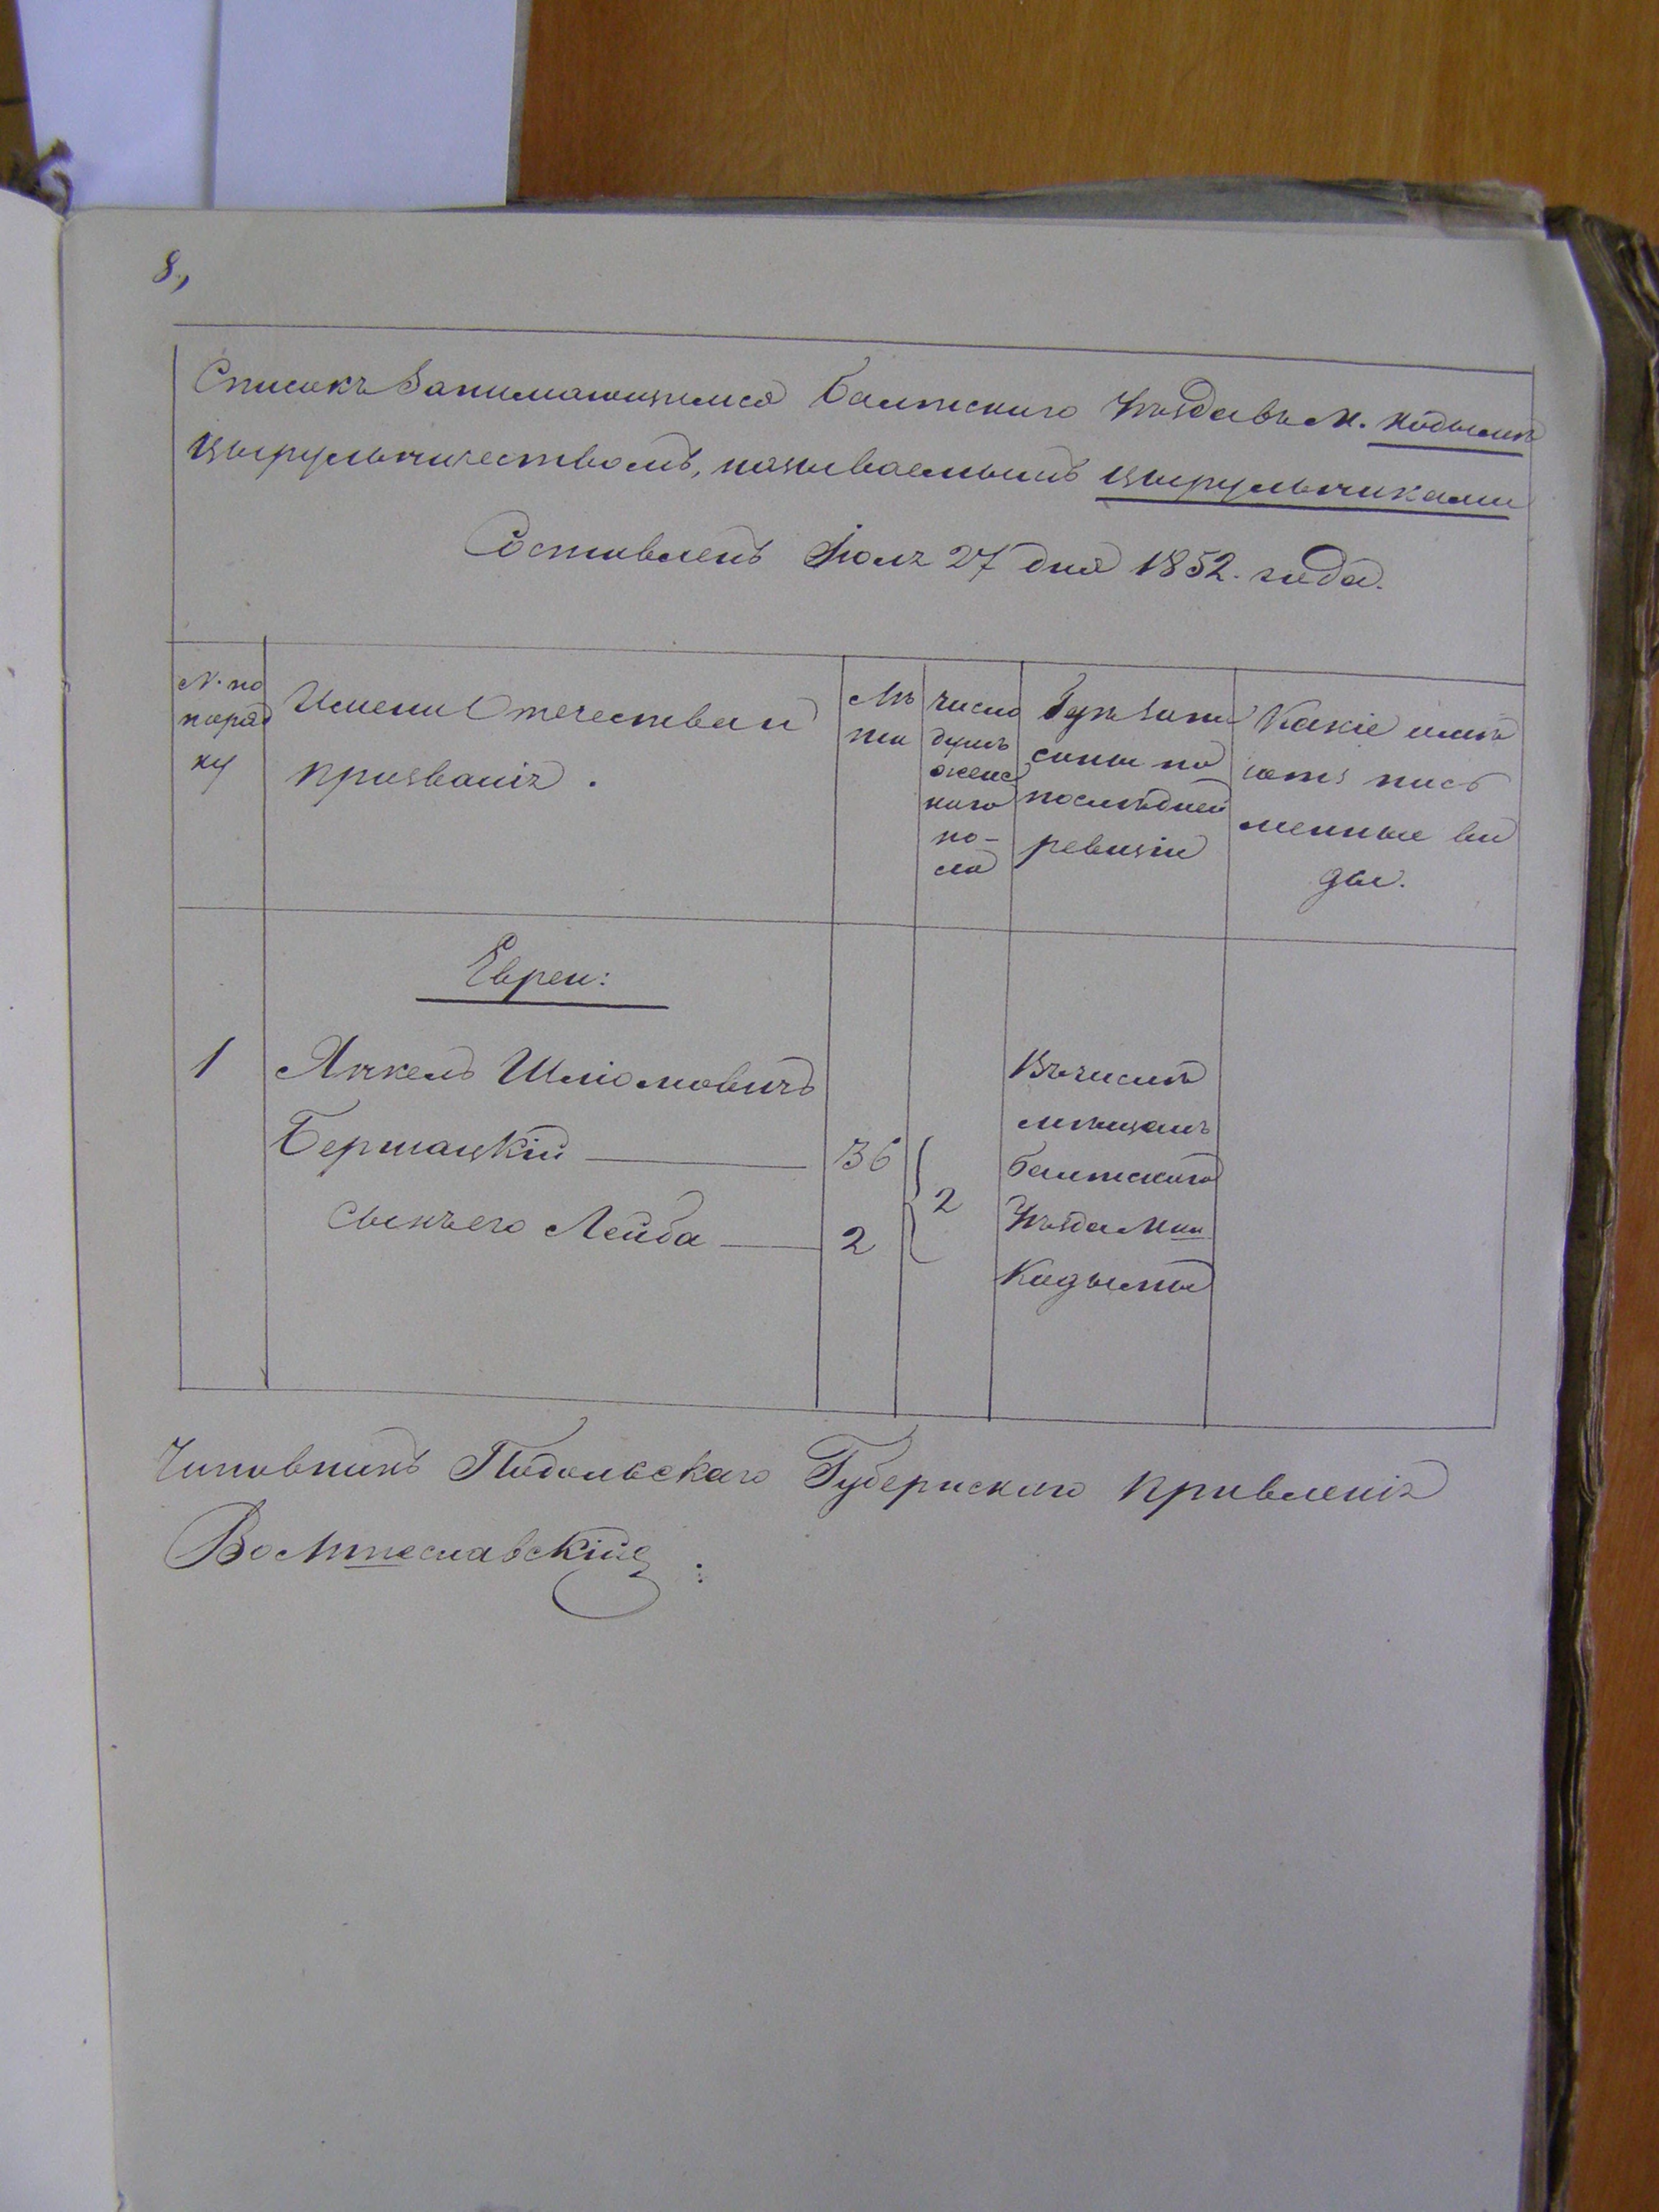 8.,
Списокъ Занимающимся Балтского Уѣзда въ М. Кодымѣ
Цырульничествомъ, называемымъ Цырульниками
Составленъ Іюля 27 дня 1852. года.
N. по
поряд
ку
Имени Отечества и
призваніе.
Лѣ
та
число
душъ
женс
каго
по-
ла
Гдѣ запи
саны по
послѣдней
ревизіи
Какіе имѣ
ютъ пись
менные ви
ды.
Евреи:
1
Янкель Шліомовичъ
Бершацкій
36
сынъ его Лейба
2
2
Въ числѣ
мѣщанъ
балтского
Уѣзда М ка
Кадымы
Чиновникъ Подольскаго Губернского правленія